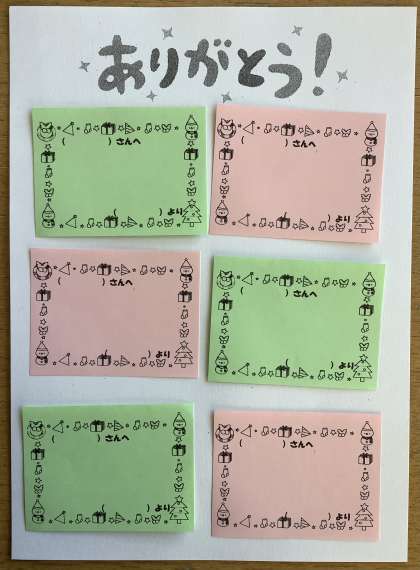 ありがとう!
(　　　)さんへ
(　　　)より
(　　　)さんへ
(　　　)より
(　　　)さんへ
(　　　)より
(　　　)さんへ
(　　　)より
(　　　)さんへ
(　　　)より
(　　　)さんへ
(　　　)より